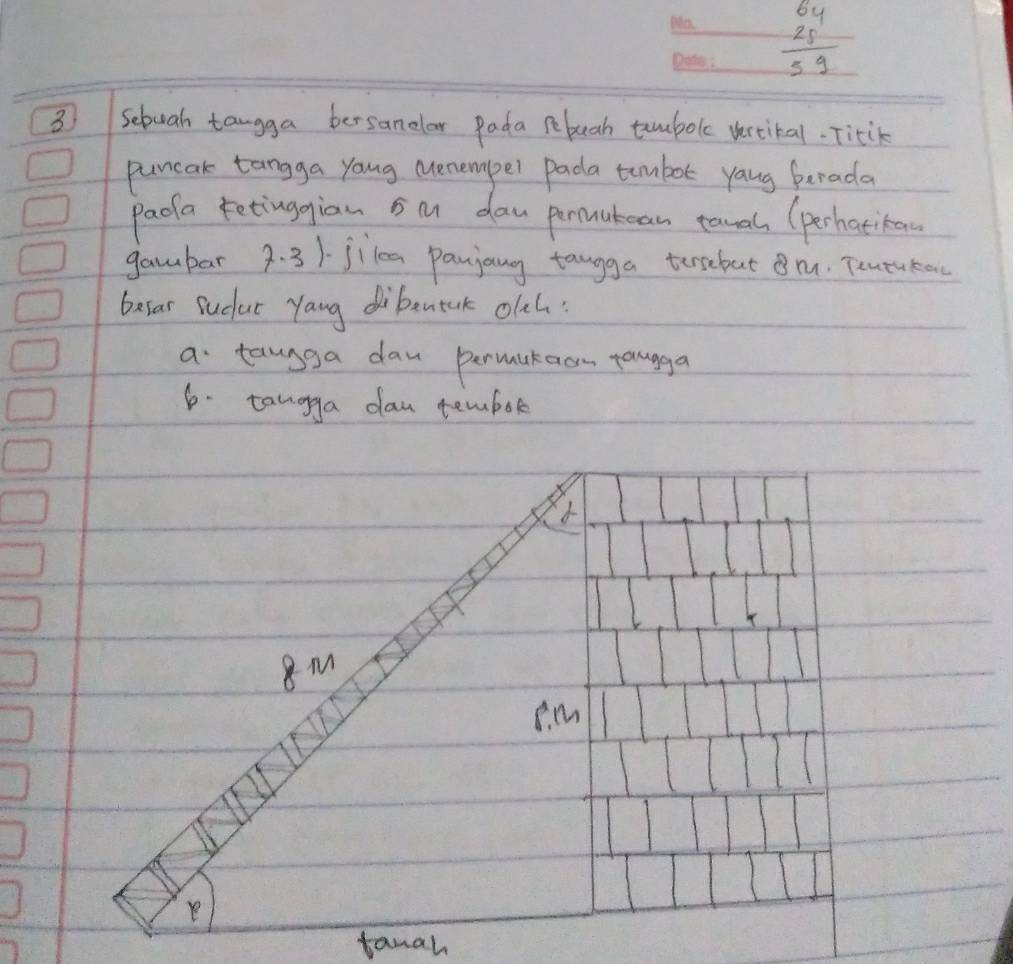 No.
Date:
64
25
59
3 Sebuah tangga bersandar pada sebuah tembok vertikal. Titik
puncak tangga yang menempel pada tembok yang berada
pada ketinggian 5 m dan permukaan tanah (perhatikan
gambar 7.3). jika panjang tangga tersebut 8 m. Tentukan
besar sudut yang dibentuk oleh:
a. tangga dan permukaan tangga
b. tangga dan tembok
α
8 m
m
β
tanah